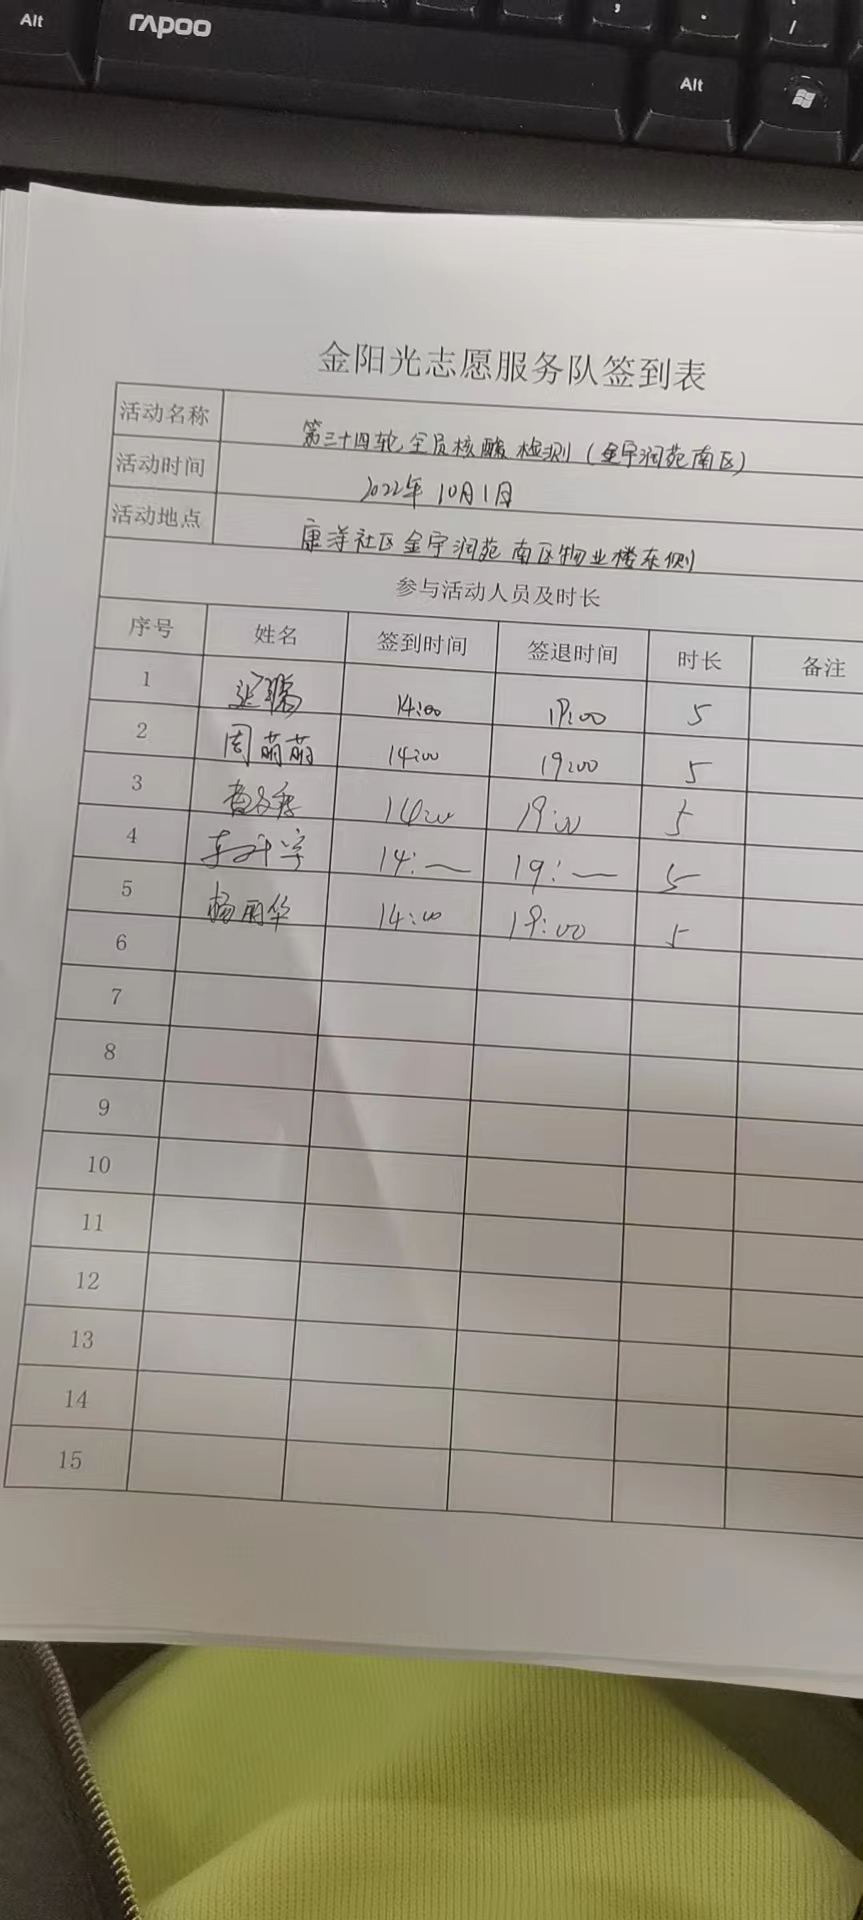 Alt
rapoo
Alt
金阳光志愿服务队签到表
活动名称 第三十四轮全员核酸检测(金宇润苑南区)
活动时间 2022年10月1日
活动地点 康洋社区金宇润苑南区物业楼东侧
参与活动人员及时长
序号 姓名 签到时间 签退时间 时长 备注
1 14:00 19:00 5
2 周萌萌 14:00 19:00 5
3 14:00 19:00 5
4 14:— 19:— 5
5 杨丽华 14:00 19:00 5
6
7
8
9
10
11
12
13
14
15